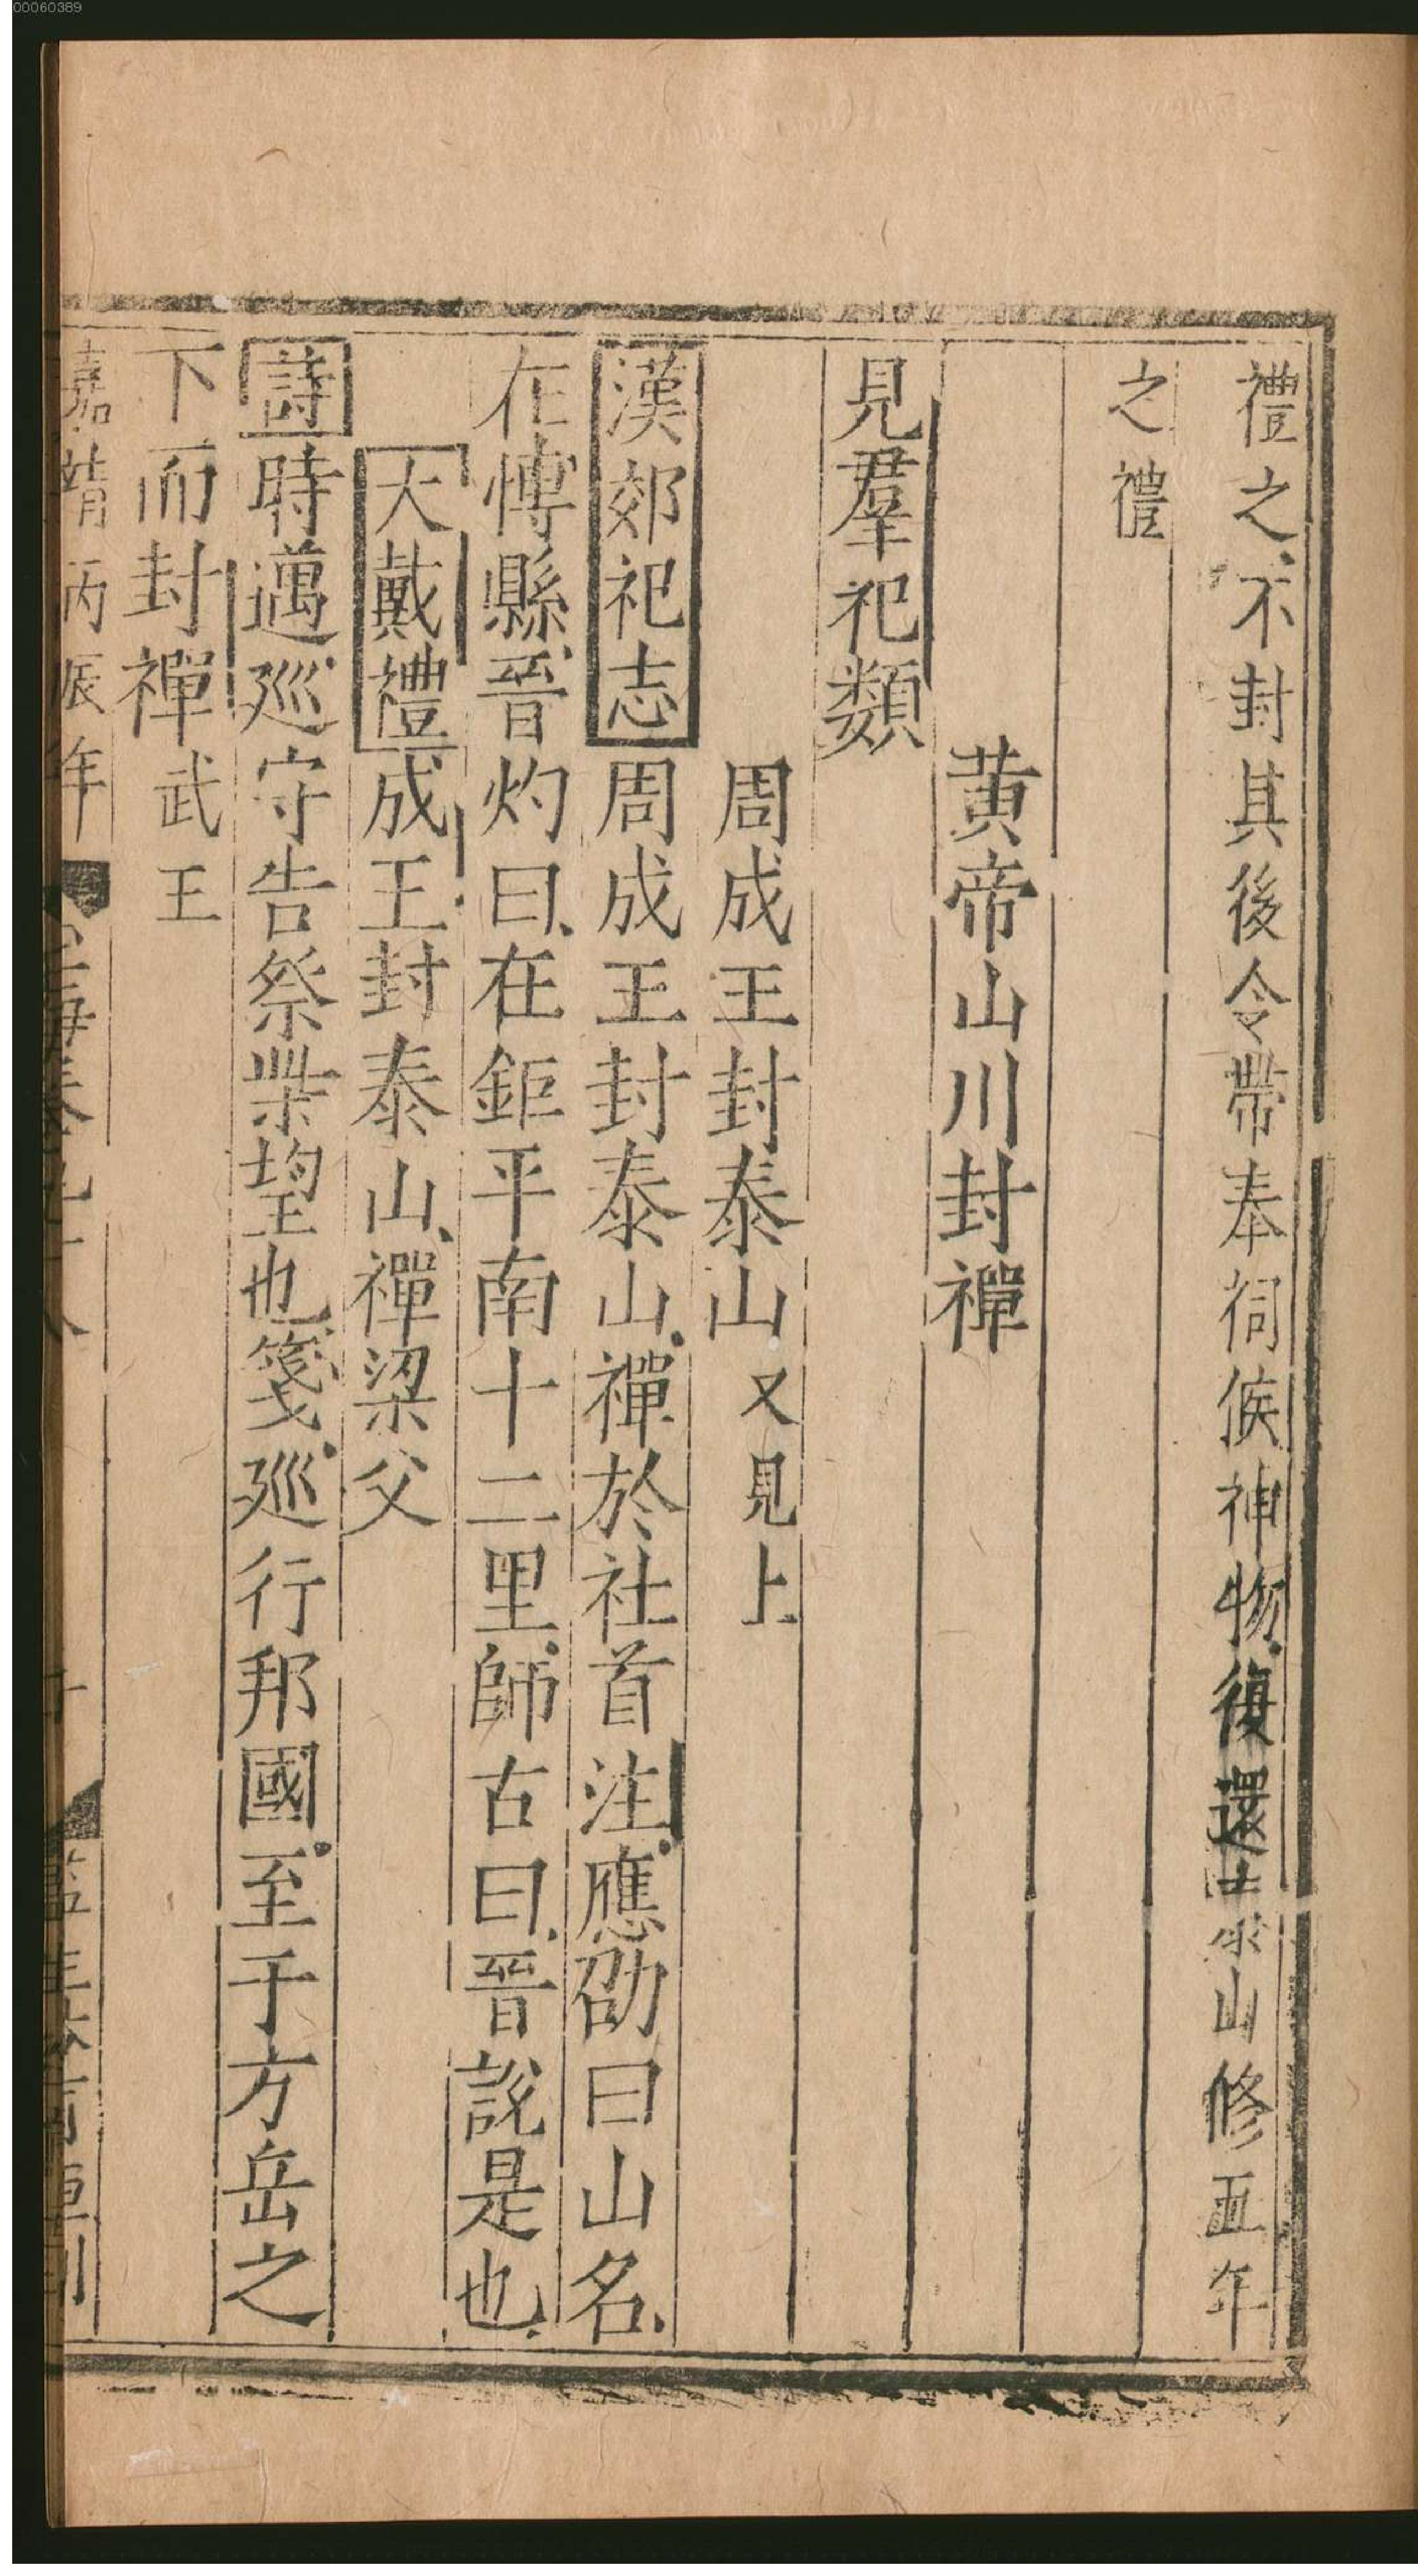 00060389
禮之不封其後令帶奉祠候神物復還去泰山修五年
之禮
黄帝山川封禪
見羣祀類
周成王封泰山又見上
漢郊祀志周成王封泰山禪於社首注應劭曰山名
在博縣晉灼曰在鉅平南十二里師古曰晉說是也
大戴禮成王封泰山禪梁父
詩時邁巡守告祭柴望也箋巡行邦國至于方岳之
下而封禪武王
嘉靖丙辰年